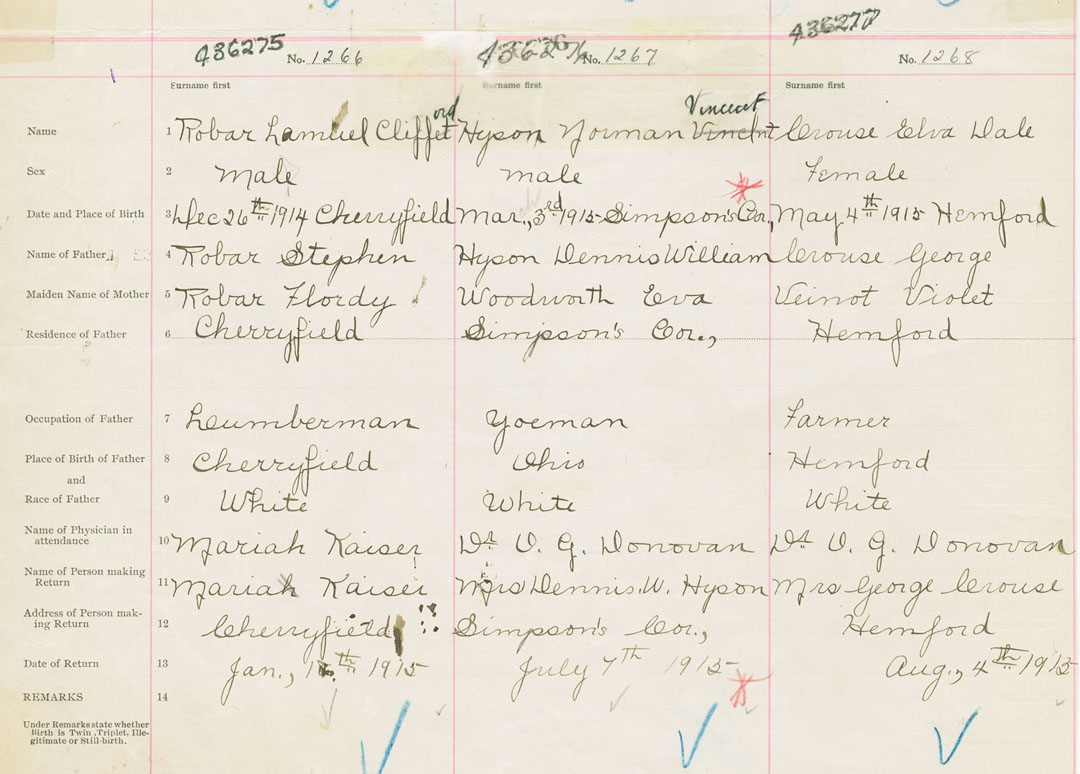 436275 436276 436277
No. 1266 No. 1267 No. 1268
Surname first Surname first Surname first
ord Vincent
Name 1 Robar Lamuel Cliffet Hyson Yorman Vincint Crouse Elva Dale
Sex 2 Male male Female
Date and Place of Birth 3 Dec 26th 1914 Cherryfield Mar., 3rd 1915 Simpson's Cor., May 4th 1915 Hemford
Name of Father 4 Robar Stephen Hyson Dennis William Crouse George
Maiden Name of Mother 5 Robar Flordy Woodworth Eva Veinot Violet
Residence of Father 6 Cherryfield Simpson's Cor., Hemford
Occupation of Father 7 Leumberman Yoeman Farmer
Place of Birth of Father 8 Cherryfield Ohio Hemford
and
Race of Father 9 White White White
Name of Physician in
attendance 10 Mariah Kaiser Dr O. G. Donovan Dr O. G. Donovan
Name of Person making
Return 11 Mariah Kaiser Mrs Dennis. W. Hyson Mrs George Crouse
Address of Person mak-
ing Return 12 Cherryfield Simpson's Cor., Hemford
Date of Return 13 Jan., th 1915 July 7th 1915 Aug., 4th 1915
REMARKS 14
Under Remarks state whether
Birth is Twin, Triplet, Ille-
gitimate or Still-birth.